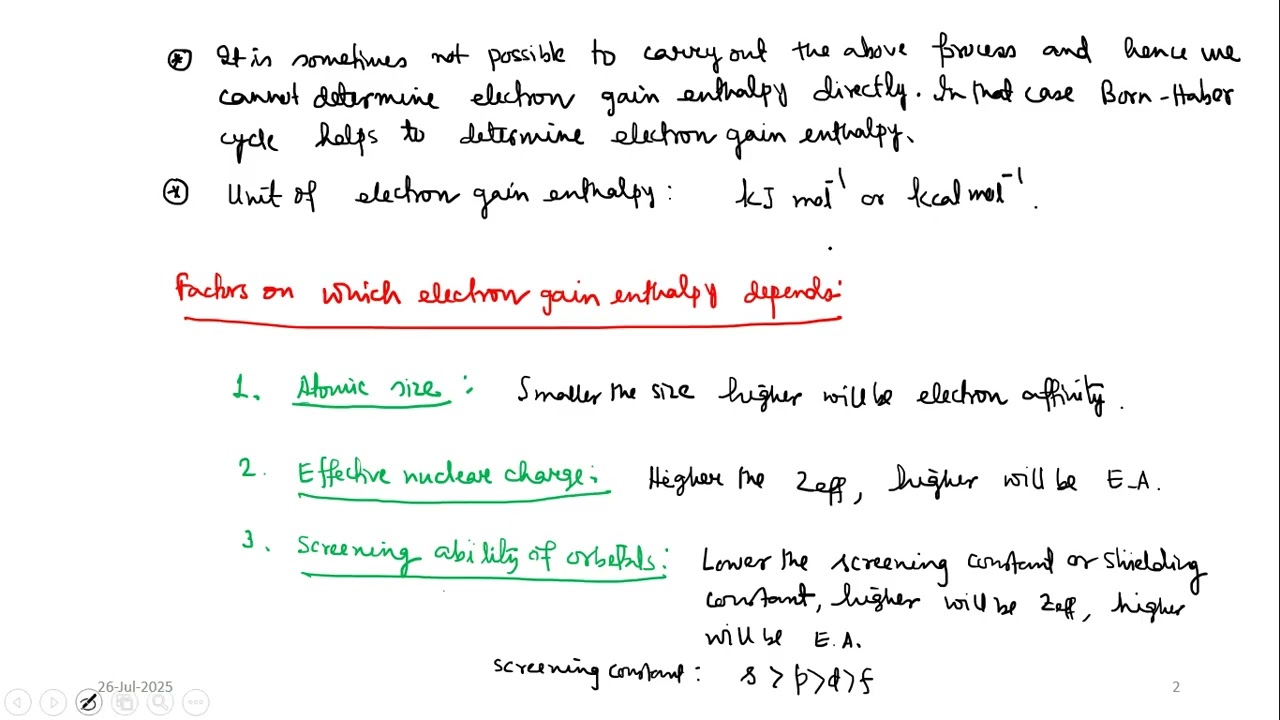 ⊛ It is sometimes not possible to carry out the above process and hence we
cannot determine electron gain enthalpy directly. In that case Born-Haber
cycle helps to determine electron gain enthalpy.
⊛ Unit of electron gain enthalpy: kJ mol⁻¹ or kcal mol⁻¹.
Factors on which electron gain enthalpy depends:
1. Atomic size: Smaller the size higher will be electron affinity.
2. Effective nuclear charge: Higher the Zeff, higher will be E.A.
3. Screening ability of orbitals: Lower the screening constant or shielding
constant, higher will be Zeff, higher
will be E.A.
screening constant: s > p > d > f
26-Jul-2025
2